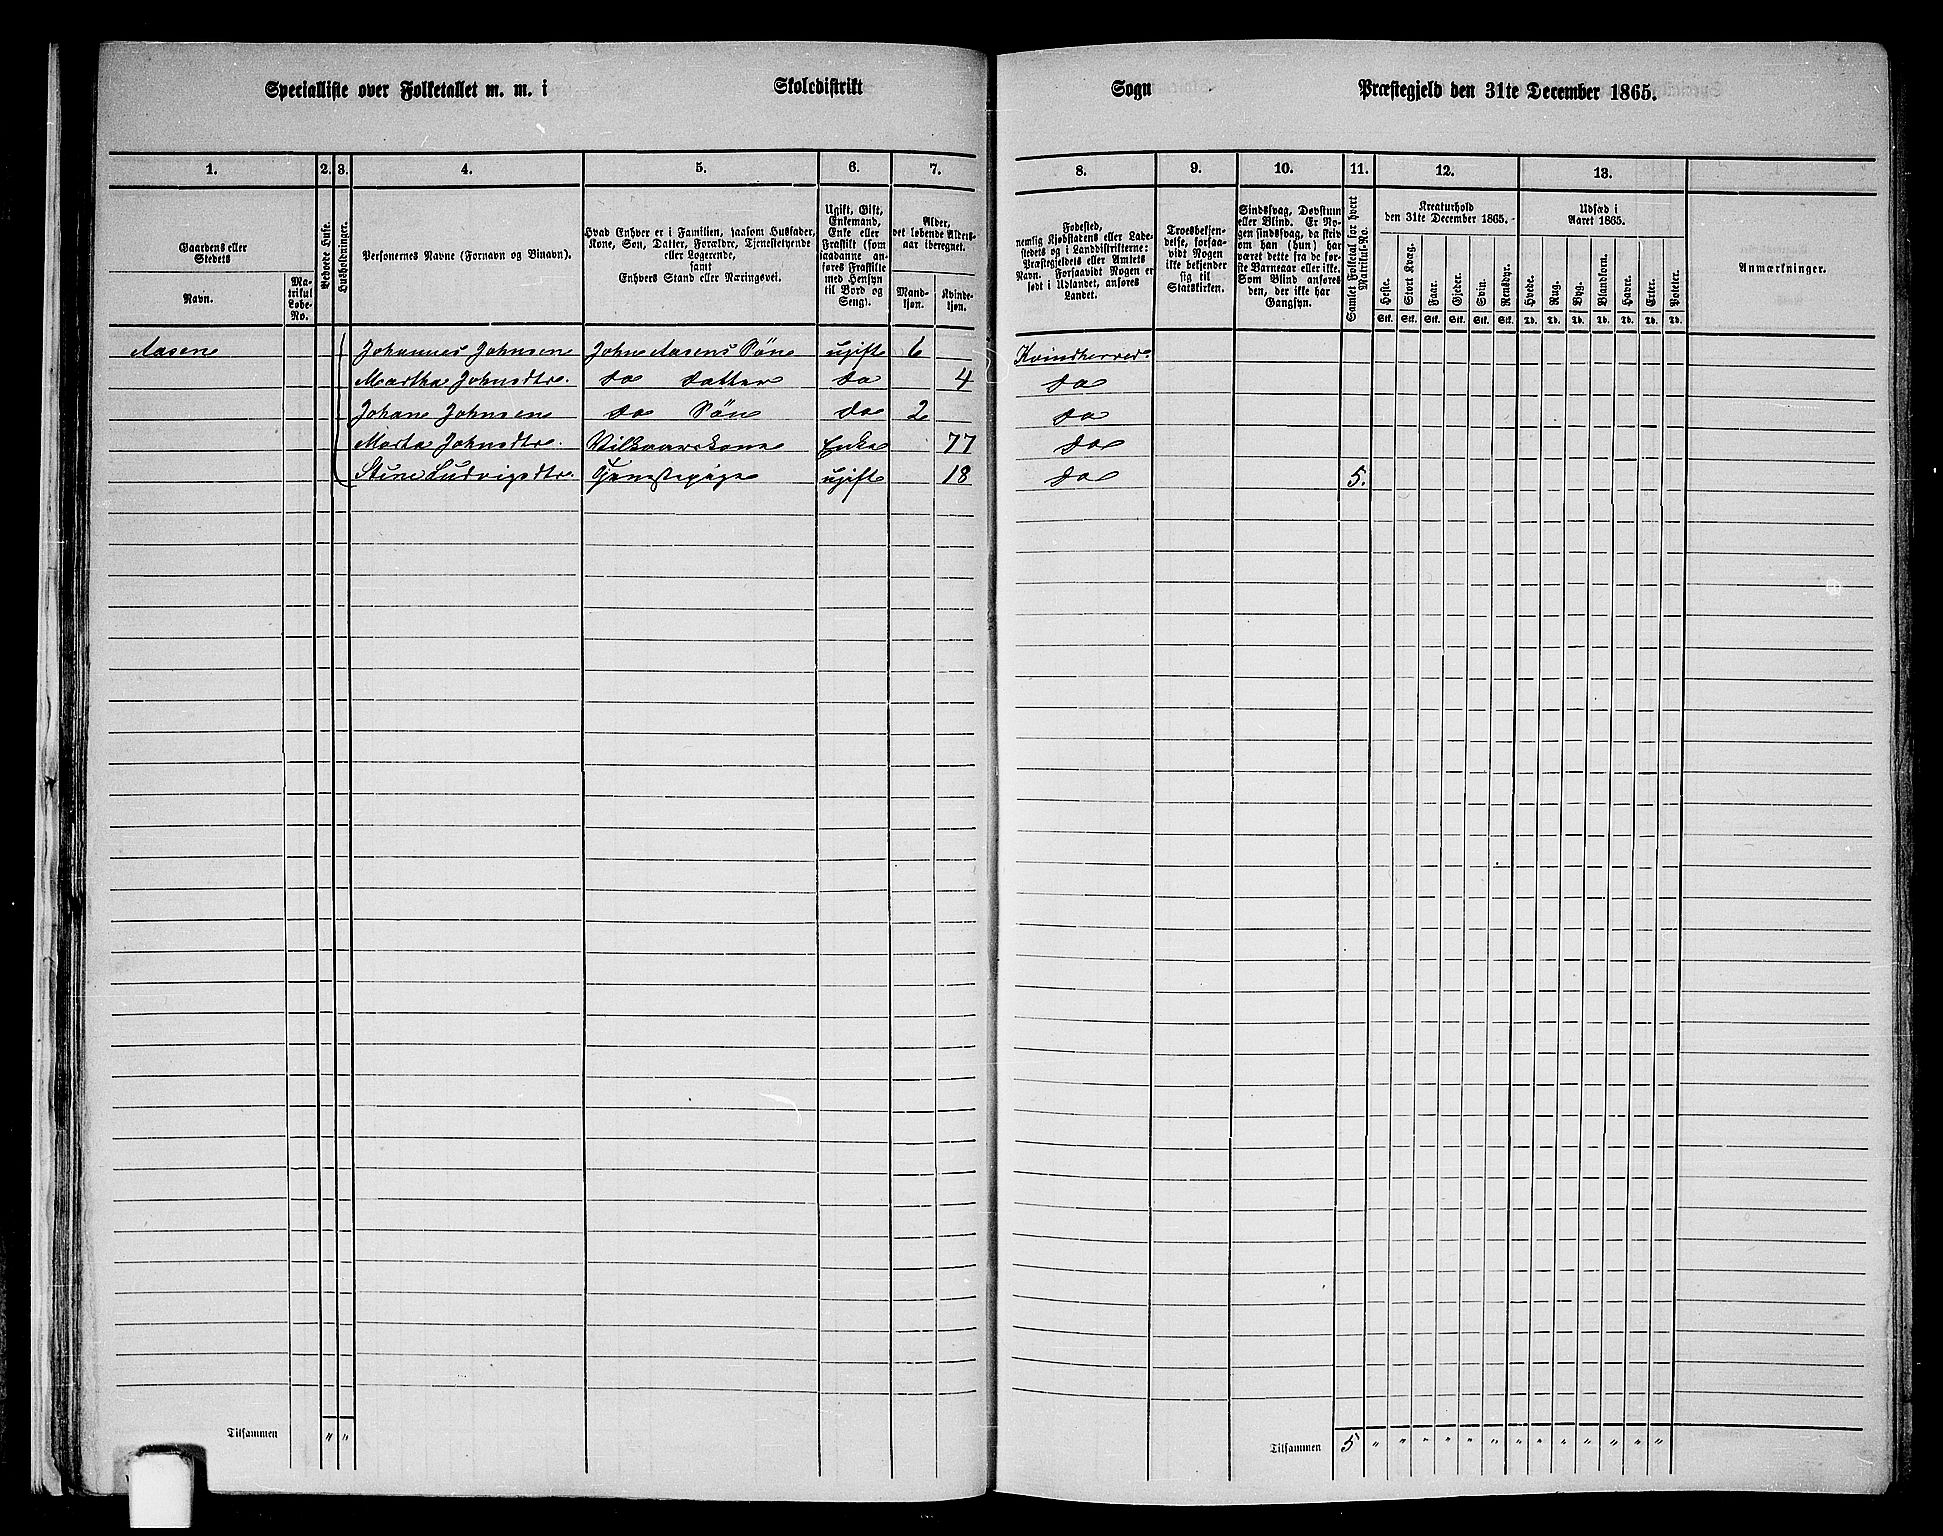 Specialliste over Folketallet m. m. i Skoledistrikt Sogn Præstegjeld den 31te December 1865.
1. 2. 3. 4. 5. 6. 7. 8. 9. 10. 11. 12. 13.
Gaardens eller Stedets
Navn.
Matrikul Løbe-No.
Beboede Huse.
Husholdninger.
Personernes Navne (Fornavn og Binavn).
Hvad Enhver er i Familien, saasom Husfader,
Kone, Søn, Datter, Forældre, Tjenestetyende
eller Logerende,
samt
Enhvers Stand eller Næringsvei.
Ugift, Gift,
Enkemand,
Enke eller
Fraskilt (som
saadanne an-
føres Fraskilte
med Hensyn
til Bord og
Seng).
Alder,
det løbende Alders-
aar iberegnet.
Mand-
kjøn.
Kvinde-
kjøn.
Fødested,
nemlig Kjøbstadens eller Lade-
stedets og i Landdistrikterne:
Præstegjeldets eller Amtets
Navn. Forsaavidt Nogen er
født i Udlandet, anføres
Landet.
Troesbekjen-
delse, forsaa-
vidt Nogen
ikke bekjender
sig til
Statskirken.
Sindssvag, Døvstum
eller Blind. Er No-
gen sindssvag, da skriv
om han (hun) har
været dette fra de før-
ste Barneaar eller ikke.
Som Blind anføres
den, der ikke har
Gangsyn.
Samlet Folketal for hvert Matrikul-No.
Kreaturhold
den 31te December 1865.
Heste. Stort Kvæg. Faar. Gjeder. Svin. Rensdyr.
Stk. Stk. Stk. Stk. Stk. Stk.
Udsæd i
Aaret 1865.
Hvede. Rug. Byg. Blandkorn. Havre. Erter. Poteter.
Td. Td. Td. Td. Td. Td. Td.
Anmærkninger.
Aasene Johannes Johnsen John Aasens Søn ugift 6 Kvindherred.
Martha Johnsdtr. do datter do 4 do
Johan Johnsen do Søn do 2 do
Marta Johnsdtr. Vilkaarskone Enke 77 do
Stine Ludvigsdtr. Tjenestepige ugift 18 do 5.
Tilsammen " "
Tilsammen 5 " " " " " " " " " " " " "